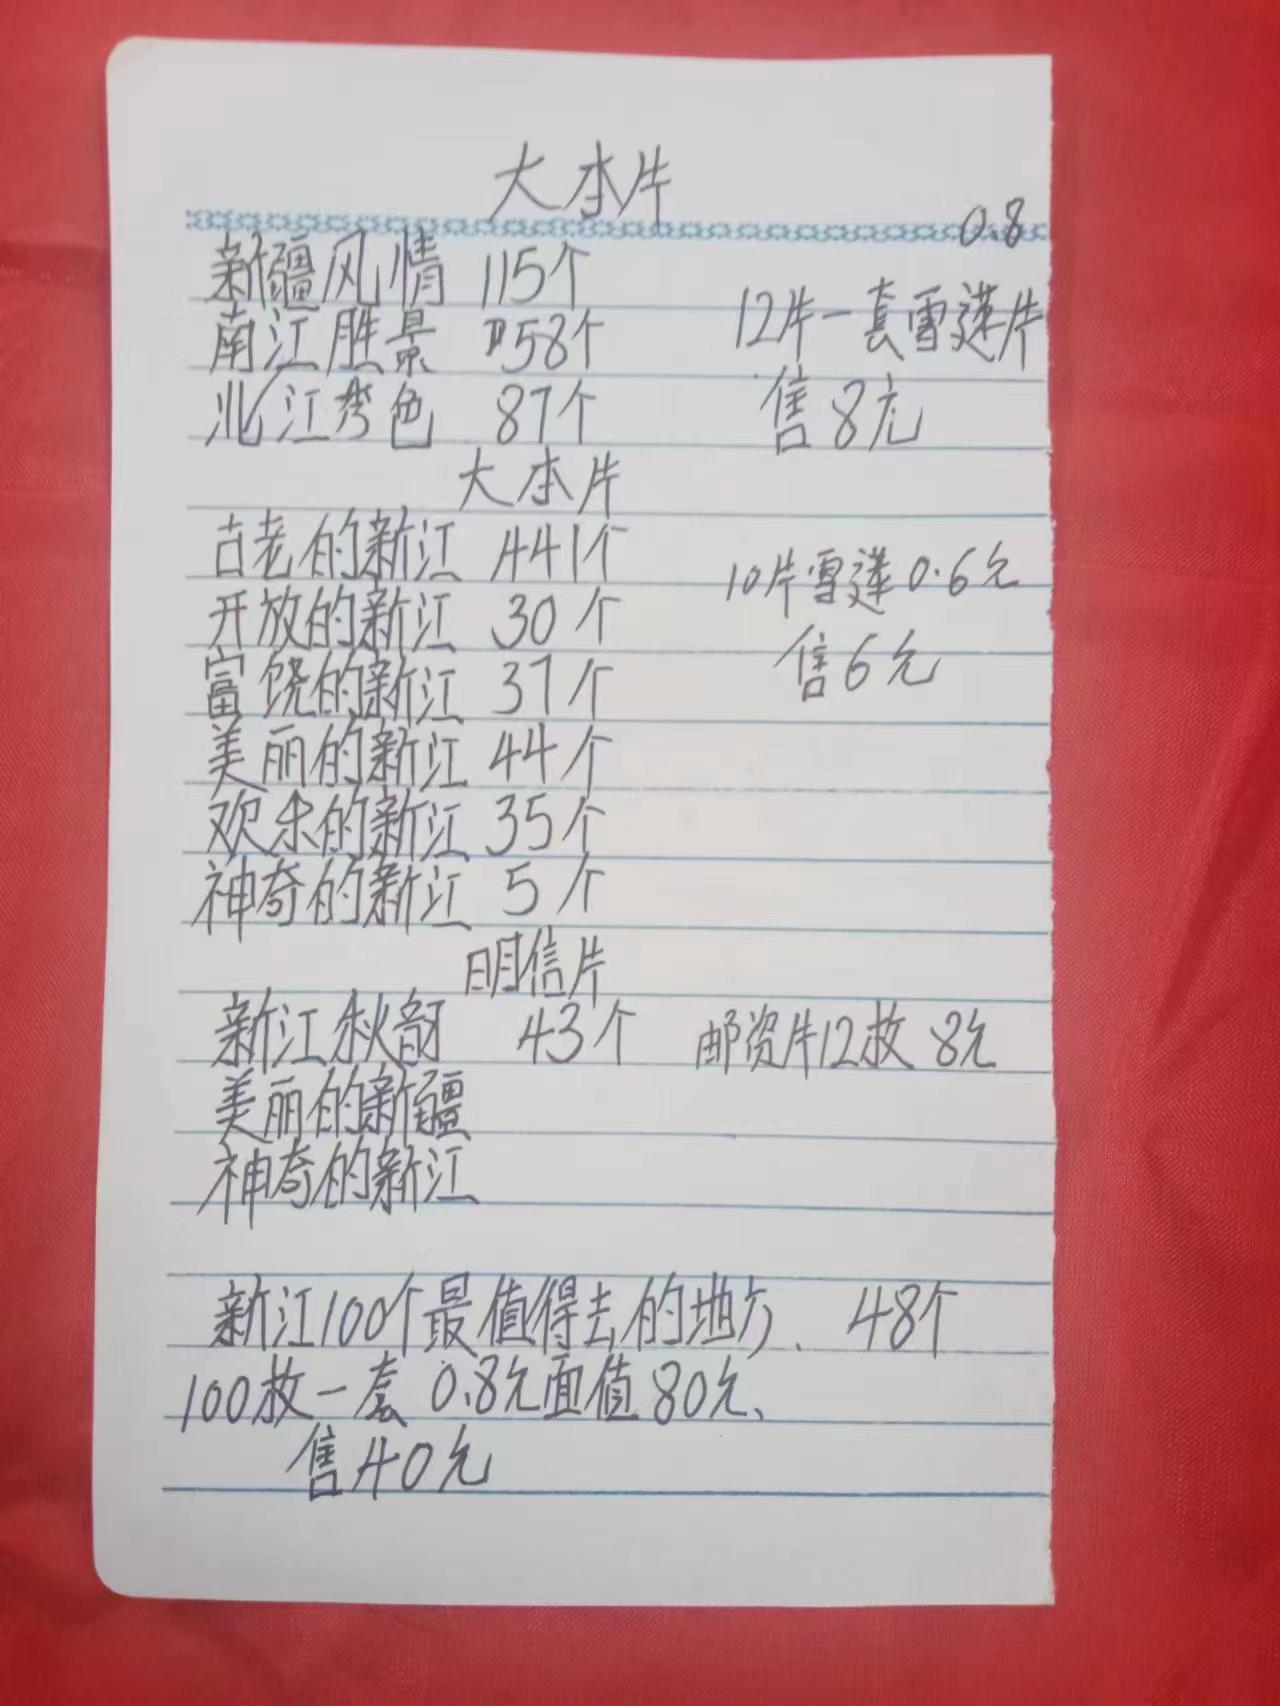 大本片
0.8
新疆风情 115个
12片一套雪莲片
南江胜景 58个
售8元
北江秀色 87个
大本片
古老的新江 441个
10片雪莲0.6元
开放的新江 30个
售6元
富饶的新江 37个
美丽的新江 44个
欢乐的新江 35个
神奇的新江 5个
明信片
新江秋韵 43个 邮资片12枚 8元
美丽的新疆
神奇的新江
新江100个最值得去的地方、 48个
100枚一套 0.8元面值80元、
售40元